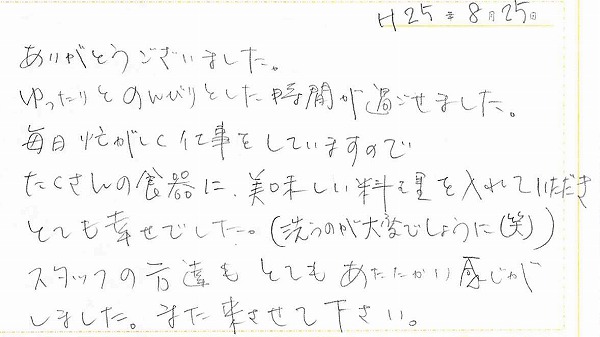 H25年8月25日
ありがとうございました。
ゆったりとのんびりとした時間が過ごせました。
毎日忙がしく仕事をしていますので
たくさんの食器に、美味しい料理を入れていただき
とても幸せでした。(洗うのが大変でしょうに(笑))
スタッフの方達もとてもあたたかい感じが
しました。また来させて下さい。